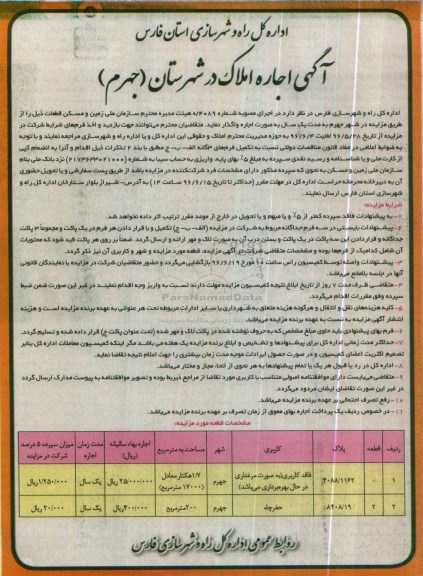 اداره کل راه و شهرسازی استان فارس
آگهی اجاره املاک در شهرستان (جهرم)
اداره کل راه و شهرسازی فارس در نظر دارد در اجرای مصوبه شماره ۴۰۸۹/ه هیئت مدیره محترم سازمان ملی زمین و مسکن قطعات ذیل را از
طریق مزایده در شهر جهرم به مدت یک سال به صورت اجاره واگذار نماید. متقاضیان محترم می‌توانند جهت بازدید و اخذ فرم‌های شرایط شرکت در
مزایده از تاریخ ۹۶/۵/۲۸ لغایت ۹۶/۶/۴ به حوزه مدیریت محترم املاک و حقوقی این اداره کل و یا اداره راه و شهرسازی مراجعه نمایند و با توجه
به ضوابط اعلامی در مفاد قانون مناقصات دولتی نسبت به تکمیل فرم‌های ۳گانه الف-ب-ج مطابق با بند ۲ تذکرات ذیل اقدام و آنرا به انضمام کپی
از کارت ملی و یا شناسنامه و رسید نقدی سپرده به مبلغ ۵٪ بهای پایه، واریزی به حساب سیبا به شماره (۲۱۷۳۶۴۳۰۲۱۰۰۰) نزد بانک ملی بنام
سازمان ملی زمین و مسکن به نحوی که سپرده مذکور دارای مشخصات فرد شرکت‌کننده در مزایده باشد از طریق پست سفارشی و یا تحویل حضوری
آن به دبیرخانه محرمانه حراست اداره کل در مهلت مقرر (حداکثر تا تاریخ ۹۶/۶/۱۵ ساعت ۱۴) به آدرس- شیراز بلوار ستارخان اداره کل راه و
شهرسازی استان فارس ارسال نمایند.
شرایط مزایده:
۱- به پیشنهادات فاقد سپرده کمتر از ۵٪ و یا مبهم و یا تحویل در خارج از موعد مقرر ترتیب اثر داده نخواهد شد.
۲- پیشنهادات بایستی در سه فرم جداگانه مربوط به شرکت در مزایده (الف-ب-ج) تکمیل و با قرار دادن هر فرم در یک پاکت و مجموعاً ۳ پاکت
جداگانه و قرار دادن این سه پاکت در یک پاکت و بستن درب آن به صورت لاک و مهر ارائه و ارسال گردد. ضمناً بر روی هر پاکت قید شود که محتویات
آن شامل کدامیک از فرم‌ها بوده و مشخصات متقاضی شرکت در آگهی مزایده، قطعه مورد مزایده و شهر و کاربری آن نیز ذکر گردد.
۳- پیشنهادات واصله توسط کمیسیون راس ساعت ۱۰ مورخ ۹۶/۶/۱۹ بازگشایی می‌گردد و حضور متقاضیان شرکت در مزایده یا نمایندگان قانونی
آنها در جلسه بلامانع می‌باشد.
۴- متقاضی ظرف مدت ۷ روز از تاریخ ابلاغ نتیجه کمیسیون مزایده مهلت دارند نسبت به واریز وجه اقدام نمایند در غیر این صورت ضمن ضبط
سپرده وفق مقررات اقدام می‌گردد.
۵- کلیه هزینه‌های نقل و انتقال و هرگونه هزینه متعلق به شهرداری یا سایر ادارات مربوطه تحت هر عنوانی به عهده برنده مزایده است و هزینه
انتشار آگهی مزایده به نسبت به عهده برنده مزایده می‌باشد.
۶- فرم بهای پیشنهادی باید حاوی مبلغ مشخص که به حروف نوشته شده در پاکت لاک و مهر شده (تحت عنوان پاکت ج) قرار داده شده و تسلیم گردد.
۷- حداکثر مدت زمانی اداره کل برای پیشنهادها و تشخیص و ابلاغ برنده مزایده یک هفته می‌باشد مگر اینکه کمیسیون معاملات اداره کل بنابر
تصمیم اکثریت اعضای کمیسیون و در صورت حصول ایرادات موجه مدت زمان بیشتری را جهت اعلام نتیجه تقاضا نماید.
۸- اداره کل در رد یا قبول هر یک یا تمام پیشنهادها به هر نحوی از انحاء مجاز و مختار می‌باشد.
۹- متقاضی می‌بایست دارای موافقتنامه اصولی متناسب با کاربری مورد تقاضا از مراجع ذیربط بوده و تصویر موافقتنامه به پیوست مدارک ارسال گردد
در غیر این صورت تقاضای ایشان مردود می‌گردد.
۱۰- رفع تصرف احتمالی بر عهده برنده مزایده می‌باشد.
۱۱- در خصوص ردیف یک پرداخت اجاره بهای معوق از زمان تصرف بر عهده برنده مزایده می‌باشد.
مشخصات قطعه مورد مزایده:
ردیف قطعه پلاک کاربری شهر مساحت به مترمربع اجاره بهاء سالیانه (ریال) مدت زمان اجاره میزان سپرده ۵ درصد شرکت در مزایده
۱ - ۴۰۸۸/۱۱۶۲ فاقد کاربری (به صورت مرغداری در حال بهره‌برداری می‌باشد) جهرم ۱/۷هکتار معادل (۱۷۰۰۰ مترمربع) ۲۵/۰۰۰/۰۰۰ ریال یک سال ۱/۲۵۰/۰۰۰ریال
۲ ۲ ۸۴۰۸/۱۹ حفر چاه جهرم ۲۰۰مترمربع ۴۰۰/۰۰۰ریال یک سال ۲۰/۰۰۰ ریال
روابط عمومی اداره کل راه و شهرسازی فارس
ParsNamadData